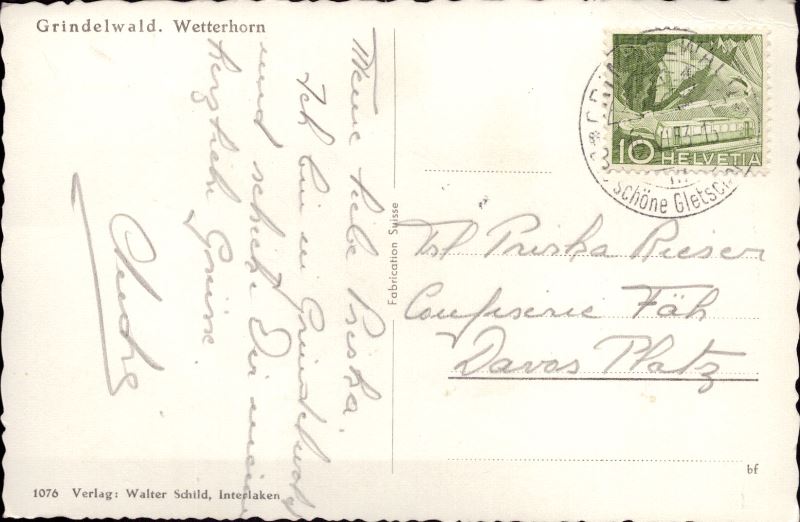 Grindelwald. Wetterhorn
Meine liebe Priska
Ich bin in Grindelwald
und schicke Dir meine
herzlich Grüsse.
Fabrication Suisse
10 HELVETIA
GRINDELWALD
Schöne Gletsch
Frl Priska Rieser
Confiserie Fäh
Davos Platz
1076 Verlag: Walter Schild, Interlaken
bf